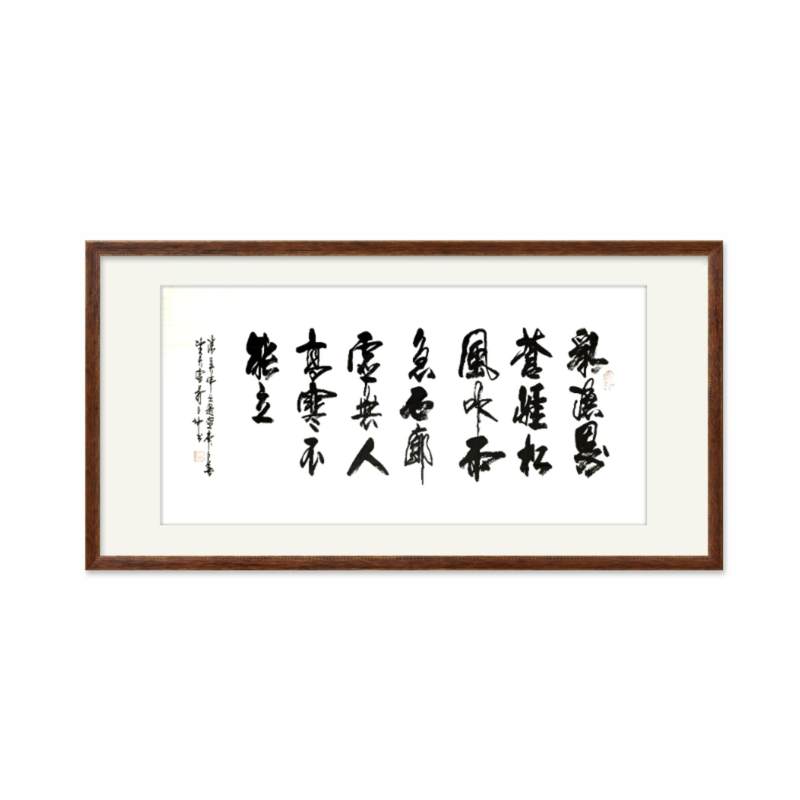 亂瀑界
蒼崖松
風吹雨
急石廊
虛無人
高寒不
能立